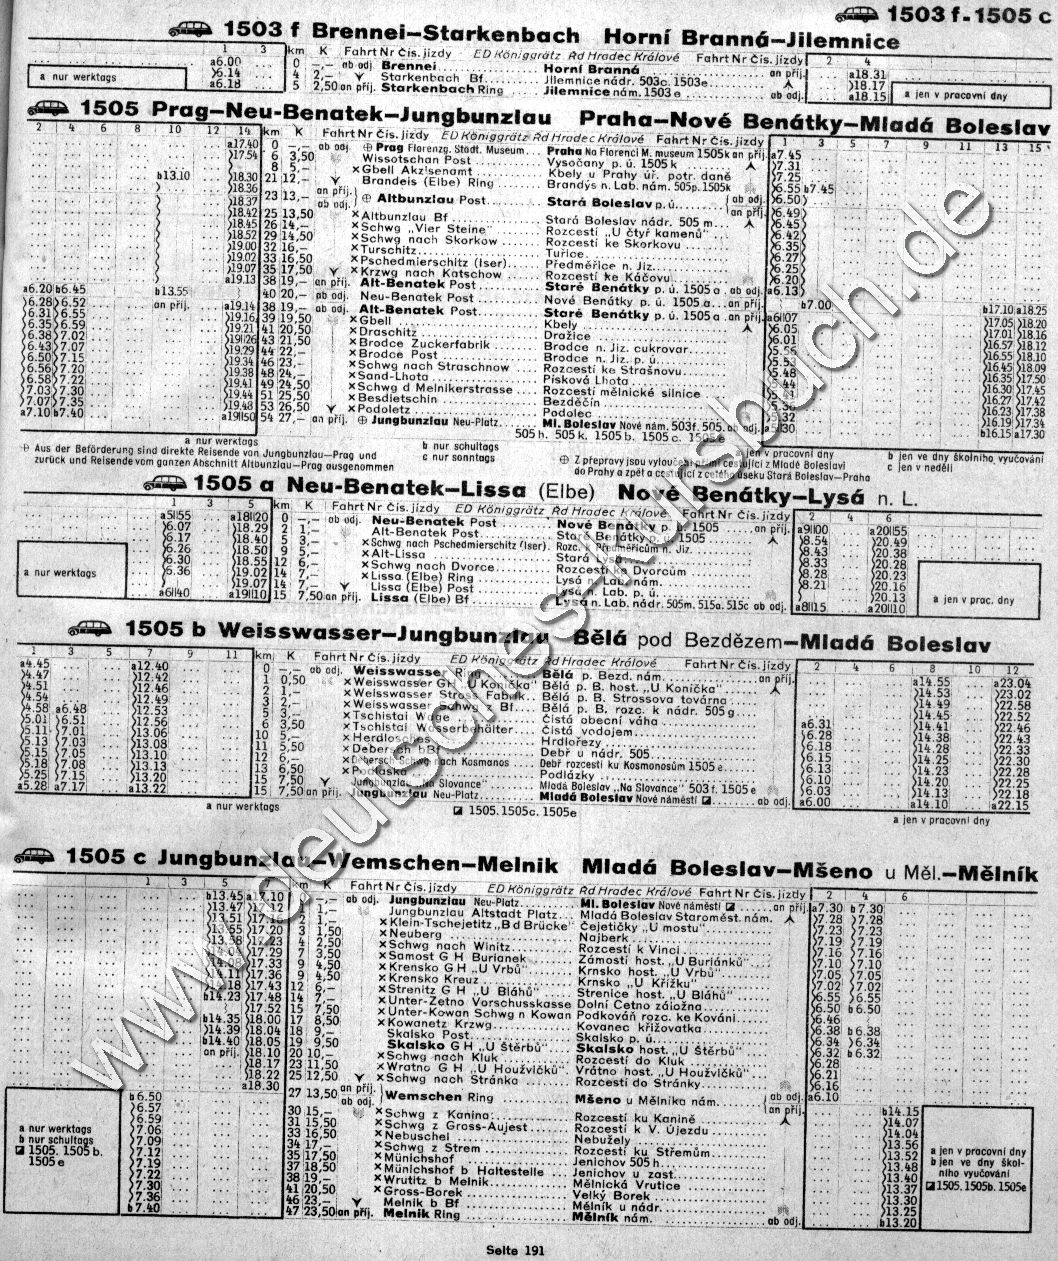 1503 f-1505 c
1503 f Brennei–Starkenbach Horní Branná–Jilemnice
1 3 km K Fahrt Nr Čís. jízdy ED Königgrätz Ŗd Hradec Králové Fahrt Nr Čís. jízdy 2 4
a6.00 0 –,– ab odj. Brennei Horní Branná an příj. a18.31
6.14 4 2,– Starkenbach Bf. Jilemnice nádr. 503c. 1503e 18.17
a6.18 5 2,50 an příj. Starkenbach Ring Jilemnice nám. 1503e ab odj. a18.15
a nur werktags
a jen v pracovní dny
1505 Prag–Neu-Benatek–Jungbunzlau Praha–Nové Benátky–Mladá Boleslav
2 4 6 8 10 12 14 km K Fahrt Nr Čís. jízdy ED Königgrätz Ŗd Hradec Králové Fahrt Nr Čís. jízdy 1 3 5 7 9 11 13 15
a17.40 0 –,– ab odj. ⊕ Prag Florenzg. Städt. Museum Praha Na Florenci M. museum 1505k an příj. a7.45
17.54 6 3,50 Wissotschan Post Vysočany p. ú. 1505 k 7.31
8 5,– × Gbell Akz!senamt Kbely u Prahy úř. potr. daně 7.25
b13.10 18.30 21 12,– Brandeis (Elbe) Ring Brandýs n. Lab. nám. 505p. 1505k 6.55 b7.45
18.36 23 13,– an příj. ⊕ Altbunzlau Post Stará Boleslav p. ú. ab odj. 6.50
18.37 ab odj. an příj. 6.49
18.42 25 13,50 × Altbunzlau Bf Stará Boleslav nádr. 505 m 6.45
18.45 26 14,– × Schwg „Vier Steine" Rozcestí „U čtyř kamenů" 6.42
18.52 29 14,50 × Schwg nach Skorkow Rozcestí ke Skorkovu 6.35
19.00 32 16,– × Turschitz Tuřice 6.27
19.02 33 16,50 × Pschedmierschitz (Iser) Předměřice n. Jiz. 6.25
19.07 35 17,50 × Krzwg nach Katschow Rozcestí ke Káčovu 6.20
a19.13 38 19,– an příj. Alt-Benatek Post Staré Benátky p. ú. 1505 a ab odj. a6.13
a6.20 b6.45 b13.55 40 20,– ab odj. Neu-Benatek Post Nové Benátky p. ú. 1505 a an příj. b7.00 b17.10 a18.25
6.28 6.52 an příj. a19.14 38 19,– ab odj. Alt-Benatek Post Staré Benátky p. ú. 1505 a an příj. a6|07 17.05 18.20
6.31 6.55 19.16 39 19,50 × Gbell Kbely 6.05 17.01 18.16
6.35 6.59 19.21 41 20,50 × Draschitz Dražice 6.01 16.57 18.12
6.38 7.02 19|26 43 21,50 × Brodce Zuckerfabrik Brodce n. Jiz. cukrovar 16.55 18.10
6.43 7.07 19.29 44 22,– × Brodce Post Brodce n. Jiz. p. ú. 5.53 16.45 18.09
6.50 7.15 19.34 46 23,– × Schwg nach Straschnow Rozcestí ke Strašnovu 5.48 16.35 17.50
6.56 7.20 19.38 48 24,– × Sand-Lhota Písková Lhota 16.30 17.45
6.58 7.22 19.41 49 24,50 × Schwg d Melnikerstrasse Rozcestí mělnické silnice 16.27 17.42
7.03 7.30 19.44 51 25,50 × Besdietschin Bezděčín 16.23 17.38
7.07 7.35 19.48 53 26,50 × Podoletz Podolec 5.32 16.19 17.34
a7.10 b7.40 a19|50 54 27,– an příj. ⊕ Jungbunzlau Neu-Platz Ml. Boleslav Nové nám. 503f. 505. ab odj. b16.15 a17.30
505 h. 505 k. 1505 b. 1505 c. 1505 e
a nur werktags b nur schultags c nur sonntags
⊕ Aus der Beförderung sind direkte Reisende von Jungbunzlau–Prag und
zurück und Reisende vom ganzen Abschnitt Altbunzlau–Prag ausgenommen
⊕ Z přepravy jsou vyloučeni přímí cestující z Mladé Boleslavi
do Prahy a zpět a cestující z celého úseku Stará Boleslav–Praha
a jen v pracovní dny b jen ve dny školního vyučování
c jen v neděli
1505 a Neu-Benatek–Lissa (Elbe) Nové Benátky–Lysá n. L.
1 3 5 km K Fahrt Nr Čís. jízdy ED Königgrätz Ŗd Hradec Králové Fahrt Nr Čís. jízdy 2 4 6
a5|55 a18|20 0 –,– ab odj. Neu-Benatek Post Nové Benátky p. ú. 1505 an příj. a9|00 a20|55
6.07 18.29 2 1,– Alt-Benatek Post Staré Benátky p. ú. 1505 8.54 20.49
6.17 18.40 5 3,– × Schwg nach Pschedmierschitz (Iser) Rozc. k Předměřicům n. Jiz. 8.43 20.38
6.26 18.50 9 5,– × Alt-Lissa Stará Lysá 8.33 20.28
6.30 18.55 12 6,– × Schwg nach Dvorce Rozcestí ke Dvorcům 8.28 20.23
6.36 19.02 14 7,– × Lissa (Elbe) Ring Lysá n. Lab. nám. 8.21 20.16
19.07 14 7,– Lissa (Elbe) Post Lysá n. Lab. p. ú. 20.13
a6|40 a19|10 15 7,50 an příj. Lissa (Elbe) Bf Lysá n. Lab. nádr. 505m. 515a. 515c ab odj. a8|15 a20|10
a nur werktags
a jen v prac. dny
1505 b Weisswasser–Jungbunzlau Bělá pod Bezdězem–Mladá Boleslav
1 3 5 7 9 11 km K Fahrt Nr Čís. jízdy ED Königgrätz Ŗd Hradec Králové Fahrt Nr Čís. jízdy 2 4 6 8 10 12
a4.45 a12.40 0 –,– ab odj. Weisswasser Ring Bělá p. Bezd. nám. an příj. a14.55 a23.04
4.47 12.42 1 0,50 × Weisswasser GH „U Koníčka" Bělá p. B. host. „U Koníčka" 14.53 23.02
4.51 12.46 2 1,– × Weisswasser Stross Fabrik Bělá p. B. Strossova továrna 14.49 22.58
4.54 12.49 3 2,– × Weisswasser Schwg z Bf. Bělá p. B. rozc. k nádr. 505 g 14.45 22.52
4.58 a6.48 12.53 5 3,– × Tschistai Wage Čistá obecní váha a6.31 14.41 22.46
5.01 6.51 12.56 6 3,50 × Tschistai Wasserbehälter Čistá vodojem 6.28 14.38 22.43
5.11 7.01 13.06 10 5,– × Herdlosches Hrdlořezy 6.18 14.28 22.33
5.13 7.03 13.08 11 5,50 × Debersch bBf Debř u nádr. 505 6.15 14.25 22.30
5.15 7.05 13.10 12 6,– × Debersch Schwg nach Kosmanos Debř rozcestí ku Kosmonosům 1505 e 6.13 14.23 22.28
5.18 7.08 13.13 13 6,50 × Podlaska Podlázky 6.10 14.20 22.25
5.25 7.15 13.20 15 7,50 Jungbunzlau „Na Slovance" Mladá Boleslav „Na Slovance" 503 f. 1505 e 6.03 14.13 22.18
a5.28 a7.17 a13.22 15 7,50 an příj. Jungbunzlau Neu-Platz Mladá Boleslav Nové náměstí ◪ ab odj. a6.00 a14.10 a22.15
a nur werktags
◪ 1505. 1505c. 1505e
a jen v pracovní dny
1505 c Jungbunzlau–Wemschen–Melnik Mladá Boleslav–Mšeno u Měl.–Mělník
1 3 5 7 km K Fahrt Nr Čís. jízdy ED Königgrätz Ŗd Hradec Králové Fahrt Nr Čís. jízdy 2 4 6
b13.45 a17.10 –,– ab odj. Jungbunzlau Neu-Platz Ml. Boleslav Nové náměstí ◪ an příj. a7.30 b7.30
13.47 17.12 1,– Jungbunzlau Altstadt Platz Mladá Boleslav Staroměst. nám. 7.28 7.28
13.51 2 1,– × Klein-Tschejetitz „B d Brücke" Čejetičky „U mostu" 7.23 7.23
13.55 17.20 3 1,50 × Neuberg Najberk 7.19 7.19
17.23 4 2,50 × Schwg nach Winitz Rozcestí k Vinci 7.16 7.16
17.29 7 3,50 × Samost G H Burianek Zámostí host. „U Buriánků" 7.10 7.10
17.33 9 4,50 × Krensko G H „U Vrbů" Krnsko host. „U Vrbů" 7.05 7.05
17.36 9 4,50 × Krensko Kreuz Krnsko „U Křížku" 7.02 7.02
17.43 12 6,– × Strenitz G H „U Bláhů" Strenice host. „U Bláhů" 6.55 6.55
b14.23 17.48 14 7,– × Unter-Zetno Vorschusskasse Dolní Cetno záložna 6.50 b6.50
17.52 15 7,50 × Unter-Kowan Schwg n Kowan Podkováň rozc. ke Kováni 6.46
b14.35 18.00 17 8,50 × Kowanetz Krzwg. Kovanec křižovatka 6.38 b6.38
14.39 18.04 18 9,– Skalsko Post Skalsko p. ú. 6.34 6.34
b14.40 18.05 19 9,50 Skalsko G H „U Štěrbů" Skalsko host. „U Štěrbů" 6.32 b6.32
an příj. 18.10 20 10,– × Schwg nach Kluk Rozcestí do Kluk 6.28
18.17 23 11,50 × Wratno G H „U Houžvičků" Vrátno host. „U Houžvičků" 6.21
18.22 25 12,50 × Schwg nach Stránka Rozcestí do Stránky 6.16
a18.30 27 13,50 an příj. Wemschen Ring Mšeno u Mělníka nám. ab odj. a6.10
b6.50 ab odj. an příj. b14.15
6.57 30 15,– × Schwg z Kanina Rozcestí ku Kanině 14.07
6.59 31 15,50 × Schwg z Gross-Aujest Rozcestí k V. Újezdu 14.04
7.06 33 16,50 × Nebuschel Nebužely 13.56
7.09 34 17,– × Schwg z Strem Rozcestí ku Střemům 13.52
7.12 35 17,50 × Münichshof Jenichov 505 h 13.48
7.19 37 18,50 × Münichshof b Haltestelle Jenichov u zast. 13.40
7.22 38 19,– × Wrutitz b Melnik Mělnická Vrutice 13.37
7.30 41 20,50 × Gross-Borek Velký Borek 13.30
7.36 46 23,– Melnik b Bf Mělník u nádr. 13.25
b7.40 47 23,50 an příj. Melnik Ring Mělník nám. ab odj. b13.20
a nur werktags
b nur schultags
◪ 1505. 1505 b.
1505 e
a jen v pracovní dny
b jen ve dny školního vyučování
◪ 1505. 1505b. 1505e
Seite 191
www.deutsches-kursbuch.de